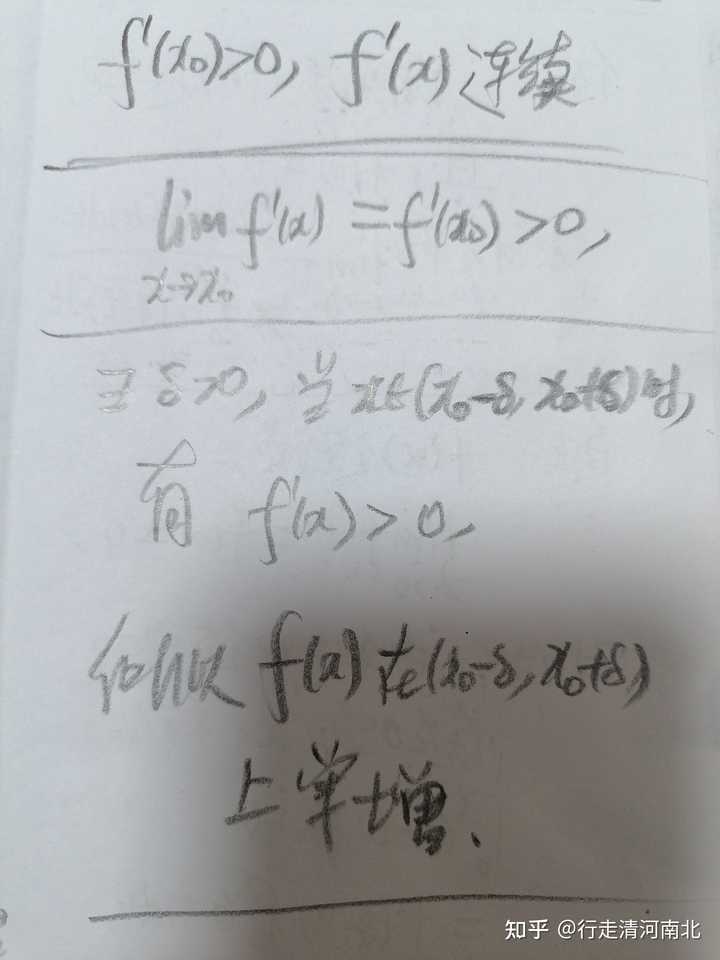 f'(x₀)>0, f'(x) 连续
lim f'(x) = f'(x₀) > 0,
x→x₀
∃ δ>0, 当 x∈(x₀-δ, x₀+δ)时,
有 f'(x) > 0,
f(x) 在(x₀-δ, x₀+δ)
上单增.
知乎 @行走清河南北